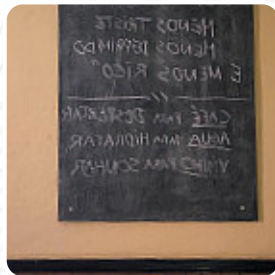 MENOS TRISTE
MENOS DEPRIMIDO
E MENOS RICO"
CAFÉ PARA DESPERTAR
AGUA PARA HIDRATAR
VINHO PARA SONHAR